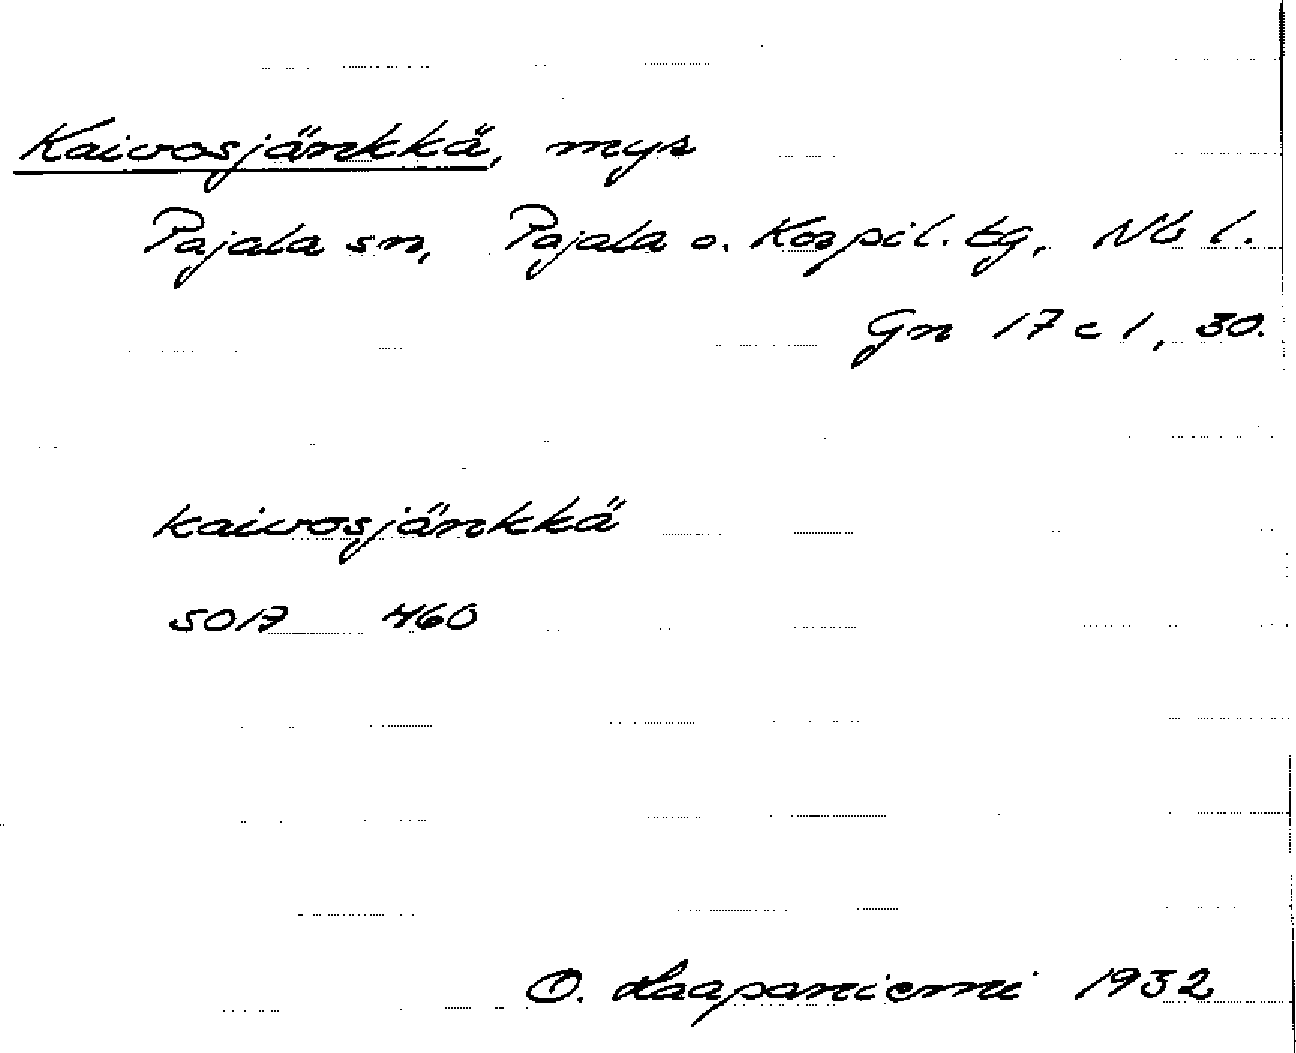 Kaivosjänkkä, myr
Pajala sn, Pajala o. Korpil. tg, Nb l.
Gn 17 c 1, 30.
kaivosjänkkä
5017 460
O. Haapaniemi 1932